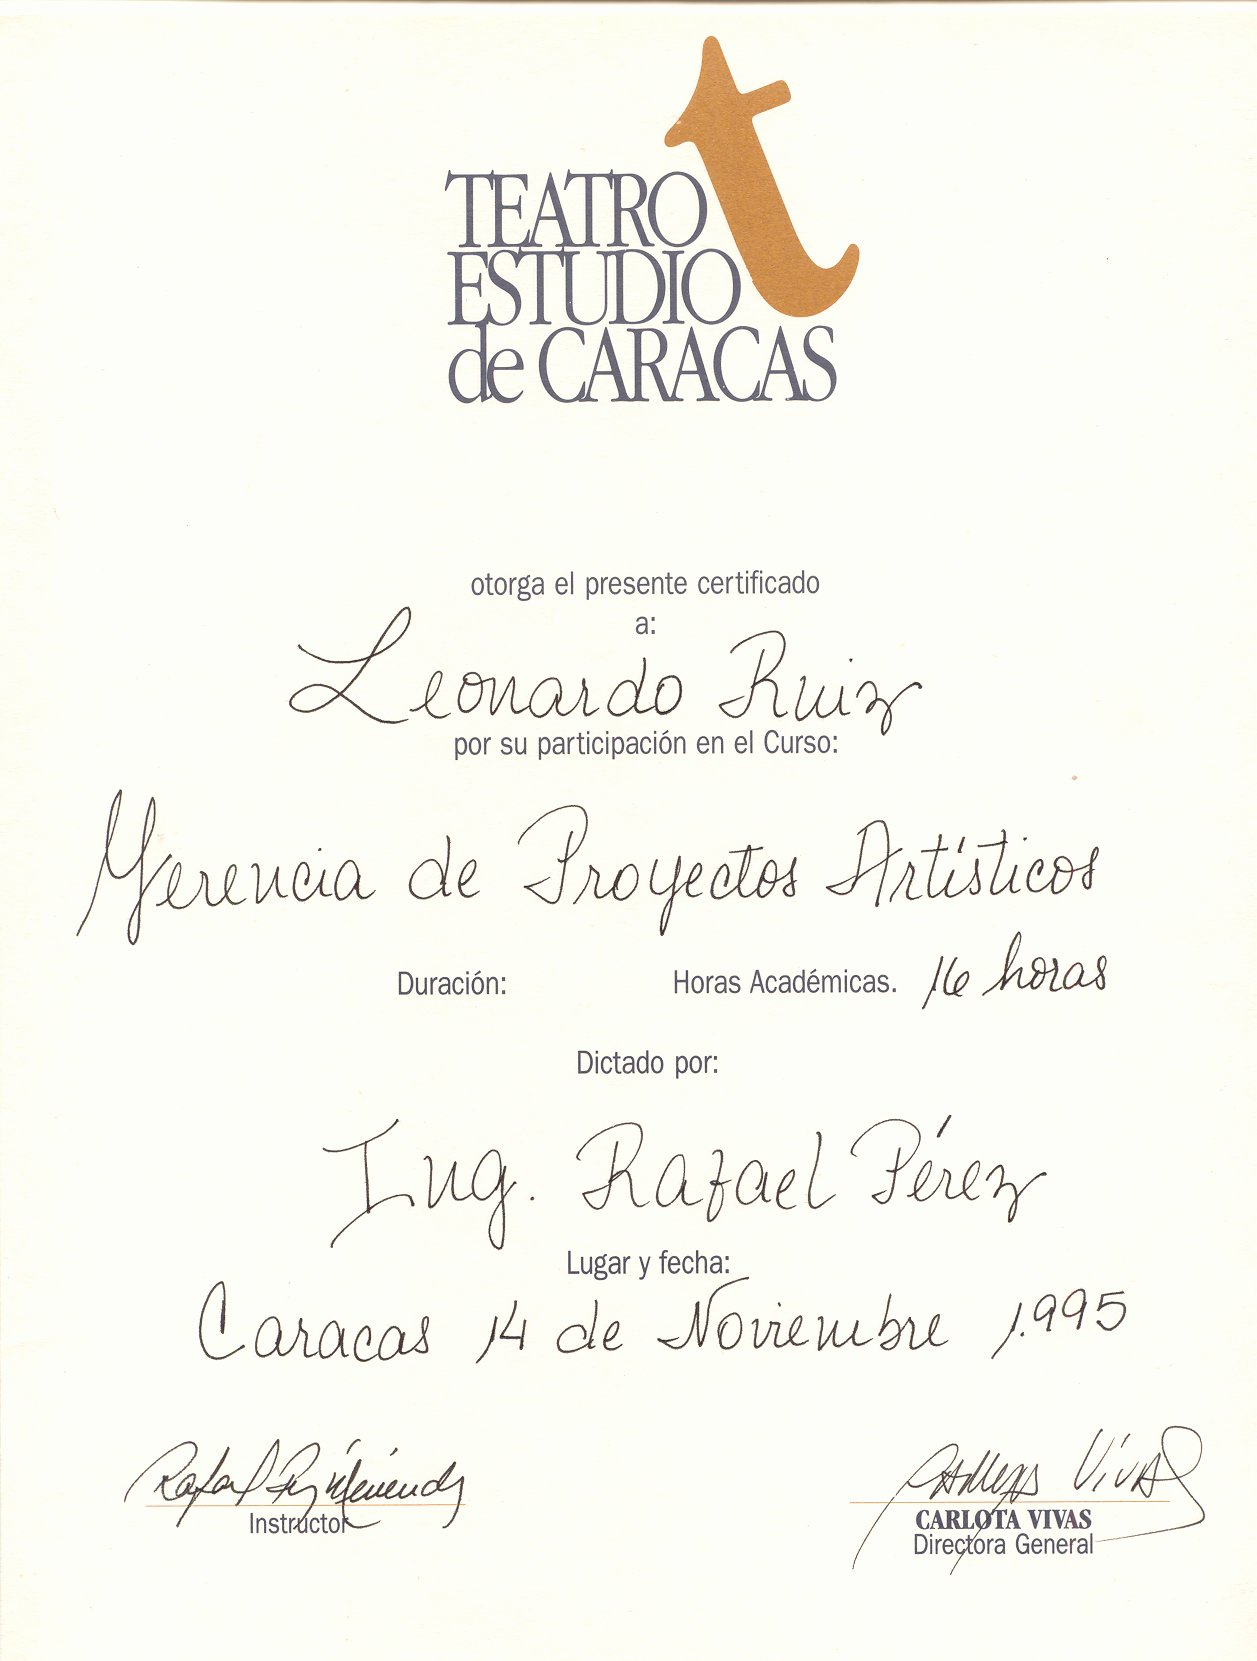 t
TEATRO
ESTUDIO
de CARACAS
otorga el presente certificado
a:
Leonardo Ruiz
por su participación en el Curso:
Gerencia de Proyectos Artísticos
Duración: Horas Académicas. 16 horas
Dictado por:
Ing. Rafael Pérez
Lugar y fecha:
Caracas 14 de Noviembre 1.995
Rafael
Vivas
Instructor
CARLOTA VIVAS
Directora General